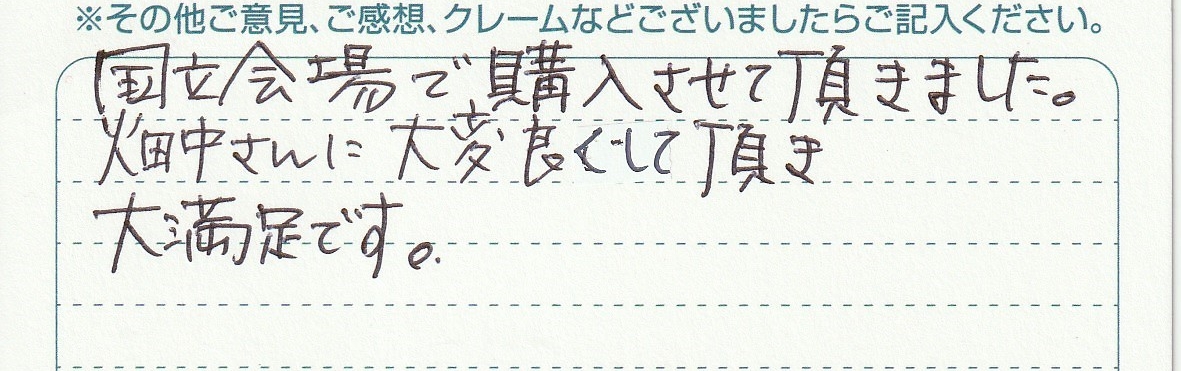 ※その他ご意見、ご感想、クレームなどございましたらご記入ください。
国立会場で購入させて頂きました。
畑中さんに大変良くして頂き
大満足です。